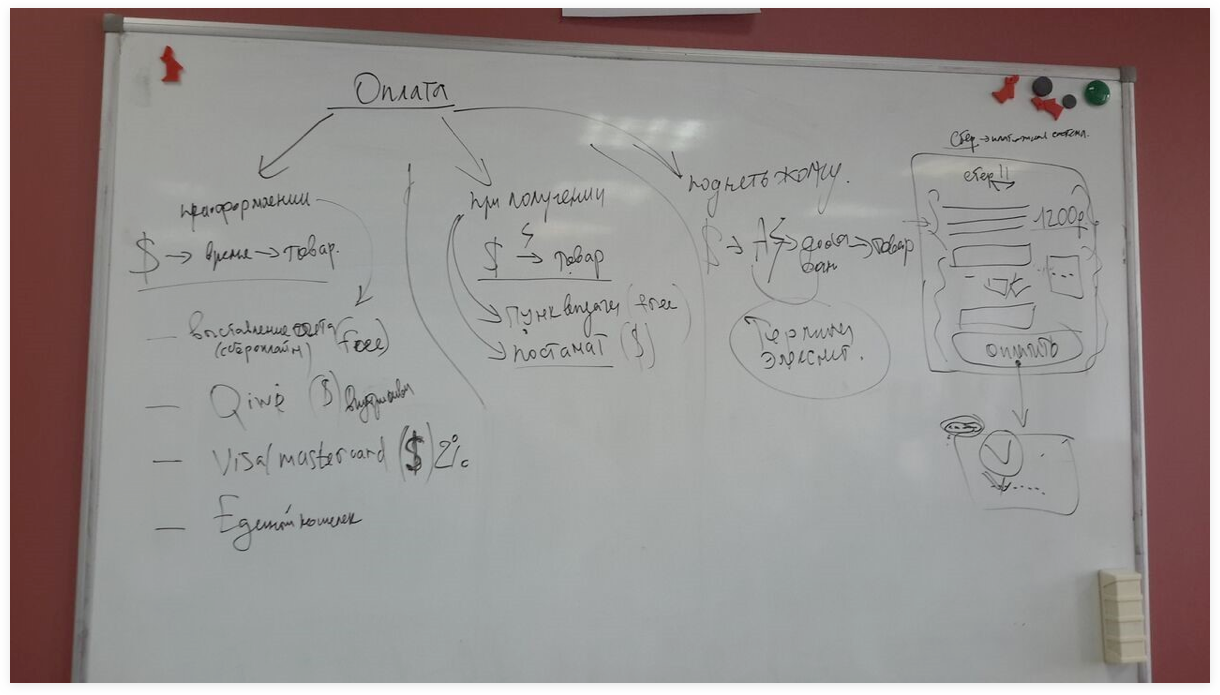 Оплата
при оформлении
$ → время → товар.
— выставление счета (free)
(сбер онлайн)
— Qiwi ($)
— Visa/mastercard ($) 2%
— Единый кошелек
при получении
$ → товар
Пункт выдачи (free)
постамат ($)
$ → → → товар
Термины
Сбер → платежная система.
сбер
1200р.
оплатить